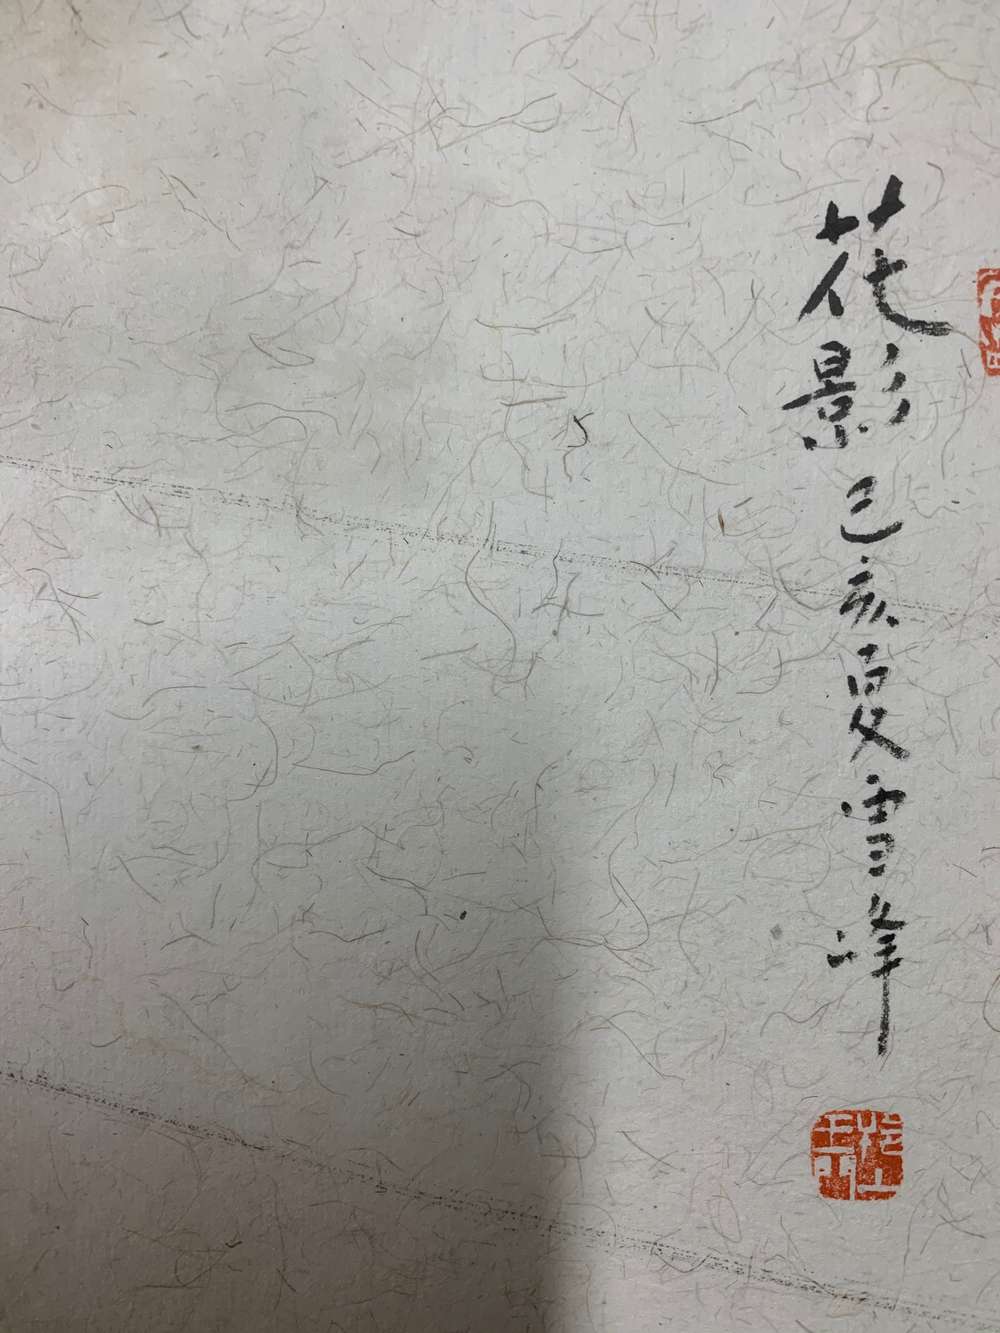 花影 己亥夏雪峰